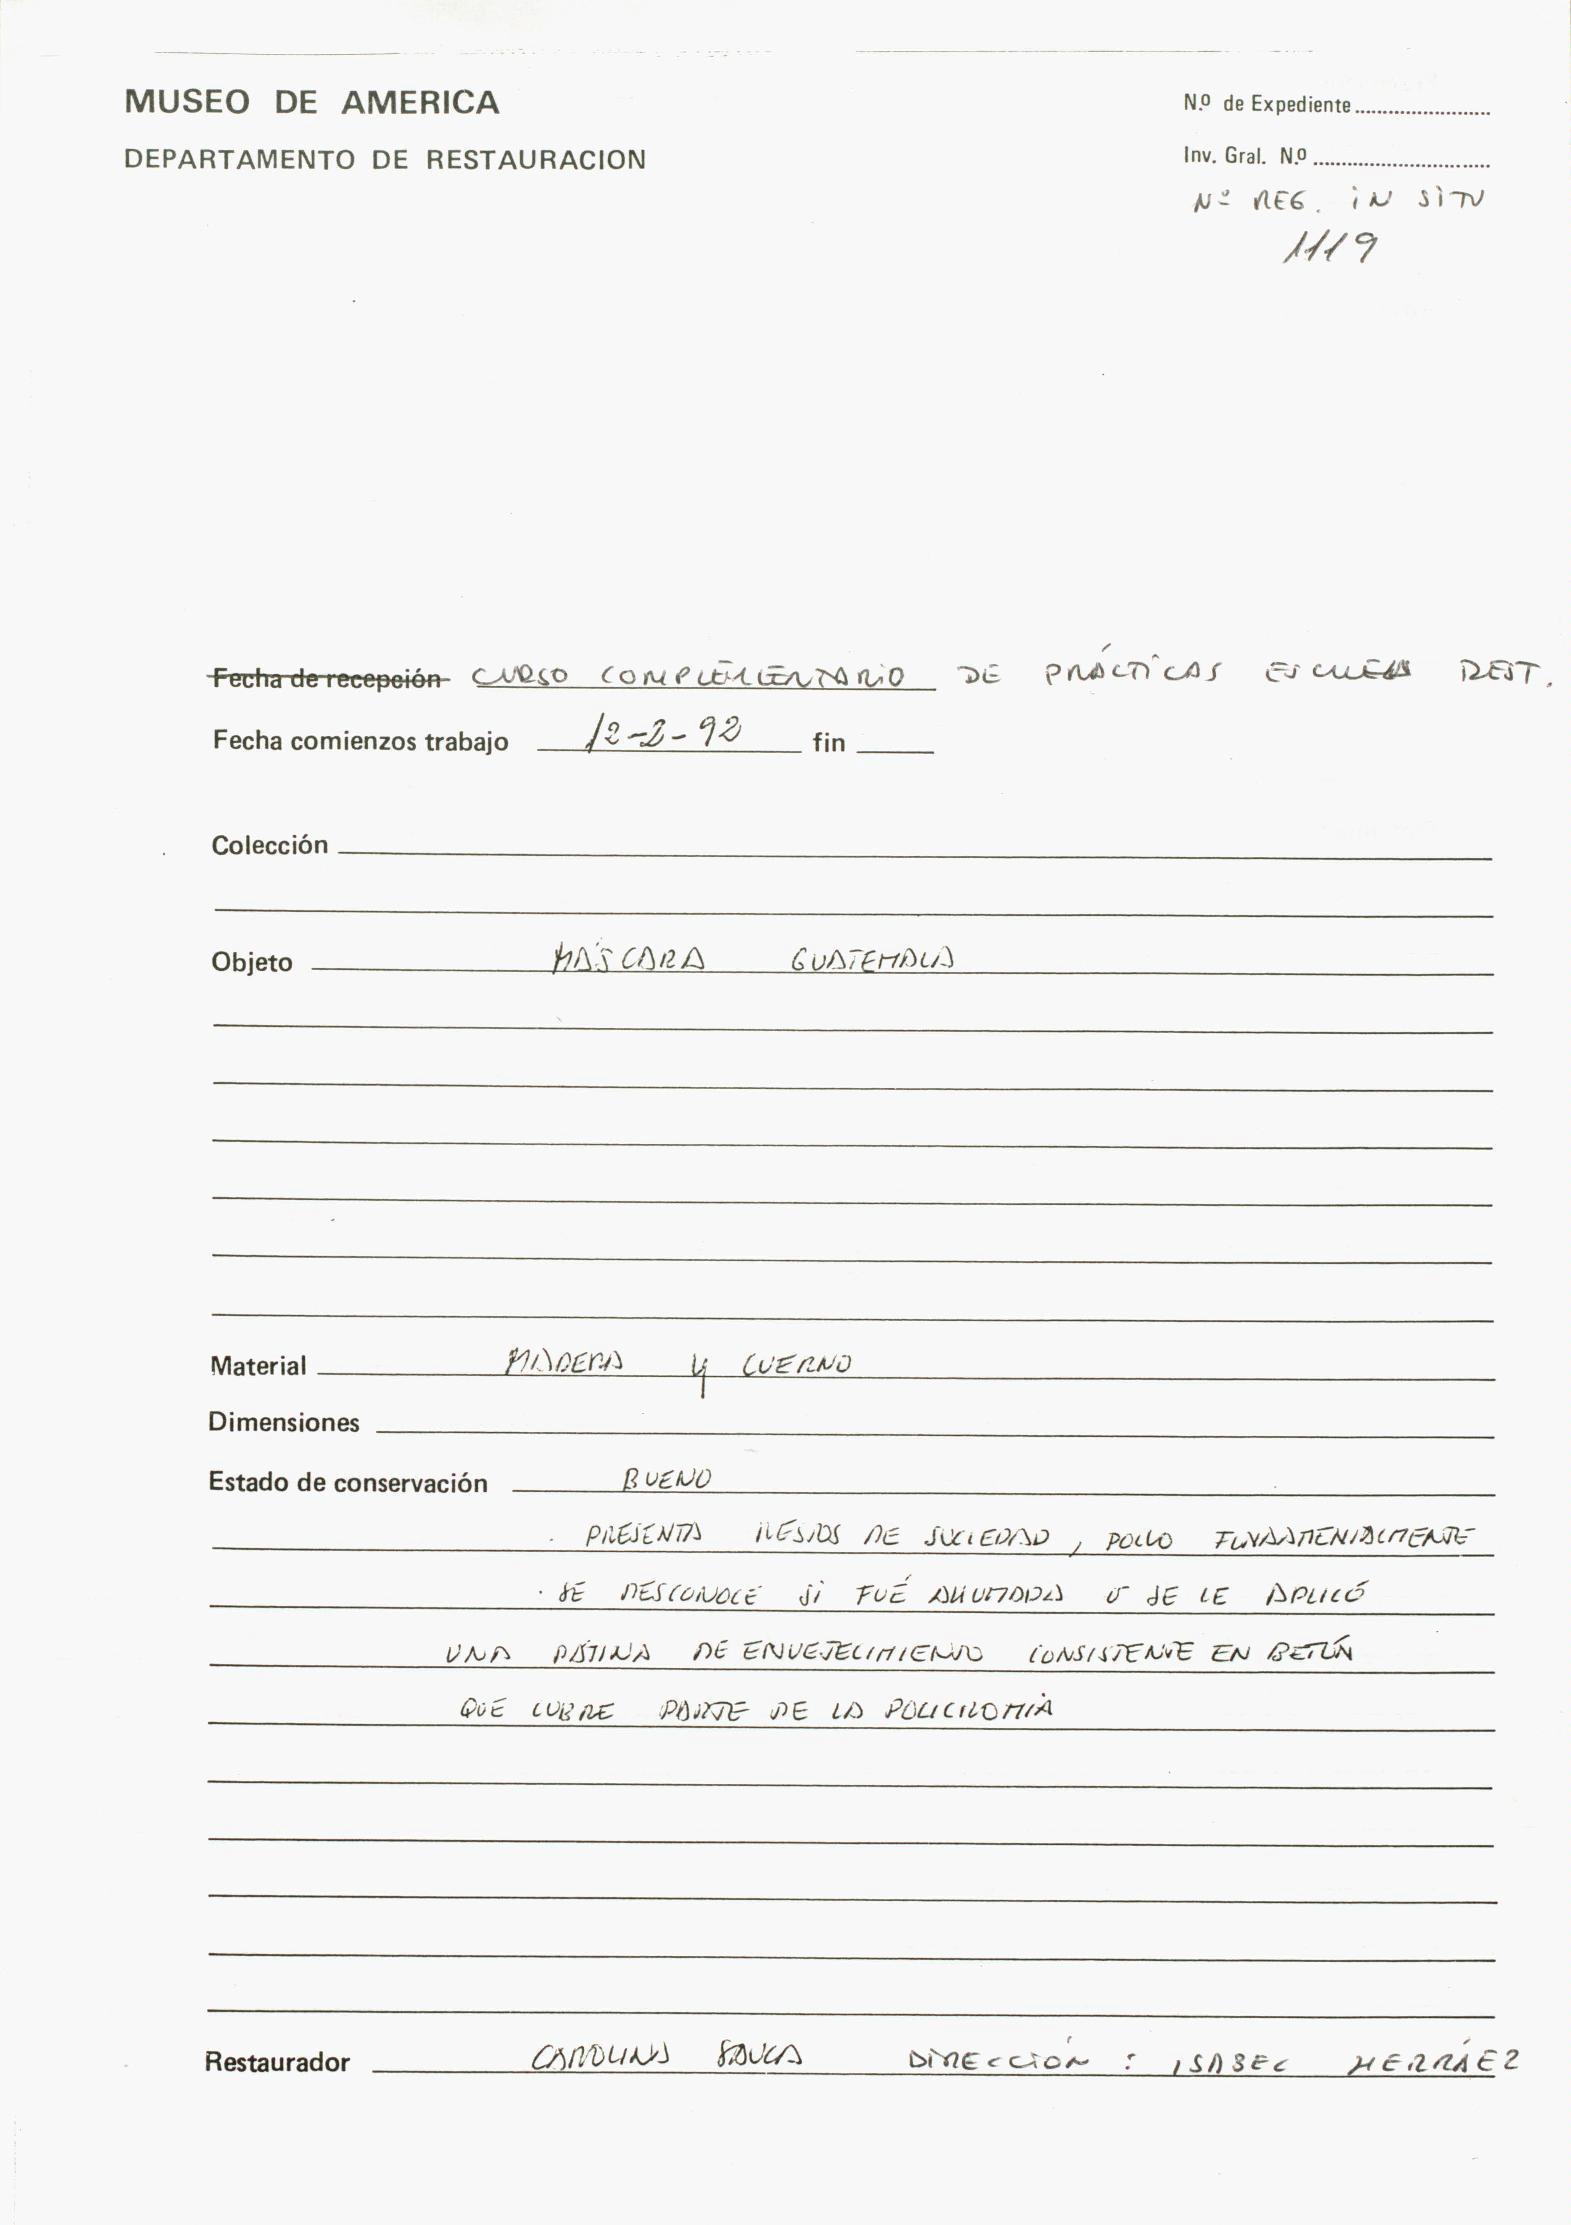 MUSEO DE AMERICA
DEPARTAMENTO DE RESTAURACION
N.º de Expediente
Inv. Gral. N.º
Nº REG. IN SITU
1119
Fecha de recepción CURSO COMPLEMENTARIO DE PRÁCTICAS ESCUELA REST.
Fecha comienzos trabajo 12-2-92 fin
Colección
Objeto MÁSCARA GUATEMALA
Material MADERA y CUERNO
Dimensiones
Estado de conservación BUENO
· PRESENTA RESTOS DE SUCIEDAD, POLVO FUNDAMENTALMENTE
· SE DESCONOCE SI FUÉ AHUMADA O SE LE APLICÓ
UNA PÁTINA DE ENVEJECIMIENTO CONSISTENTE EN BETÚN
QUE CUBRE PARTE DE LA POLICROMÍA
Restaurador CAROLINA DIRECCIÓN: ISABEL HERRÁEZ